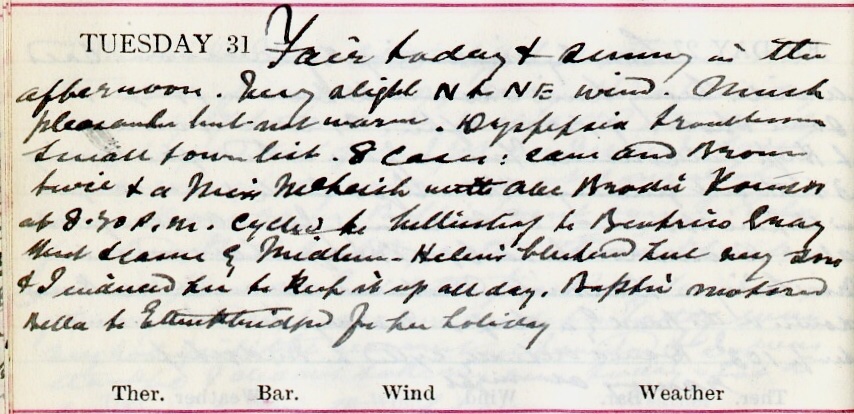 TUESDAY 31 Fair today & sunny in the
afternoon. Very slight N to NE wind. Much
pleasanter but not warm. Dyspepsia troublesome
Small town list. 8 cases: saw and Brown
twice & a Miss with Abe Brodie
at 8.30 P.m. Cycled to to Beatrice Gray
Helen's but very sore
& I induced her to keep it up all day. motored
Bella to for her holiday
Ther. Bar. Wind Weather